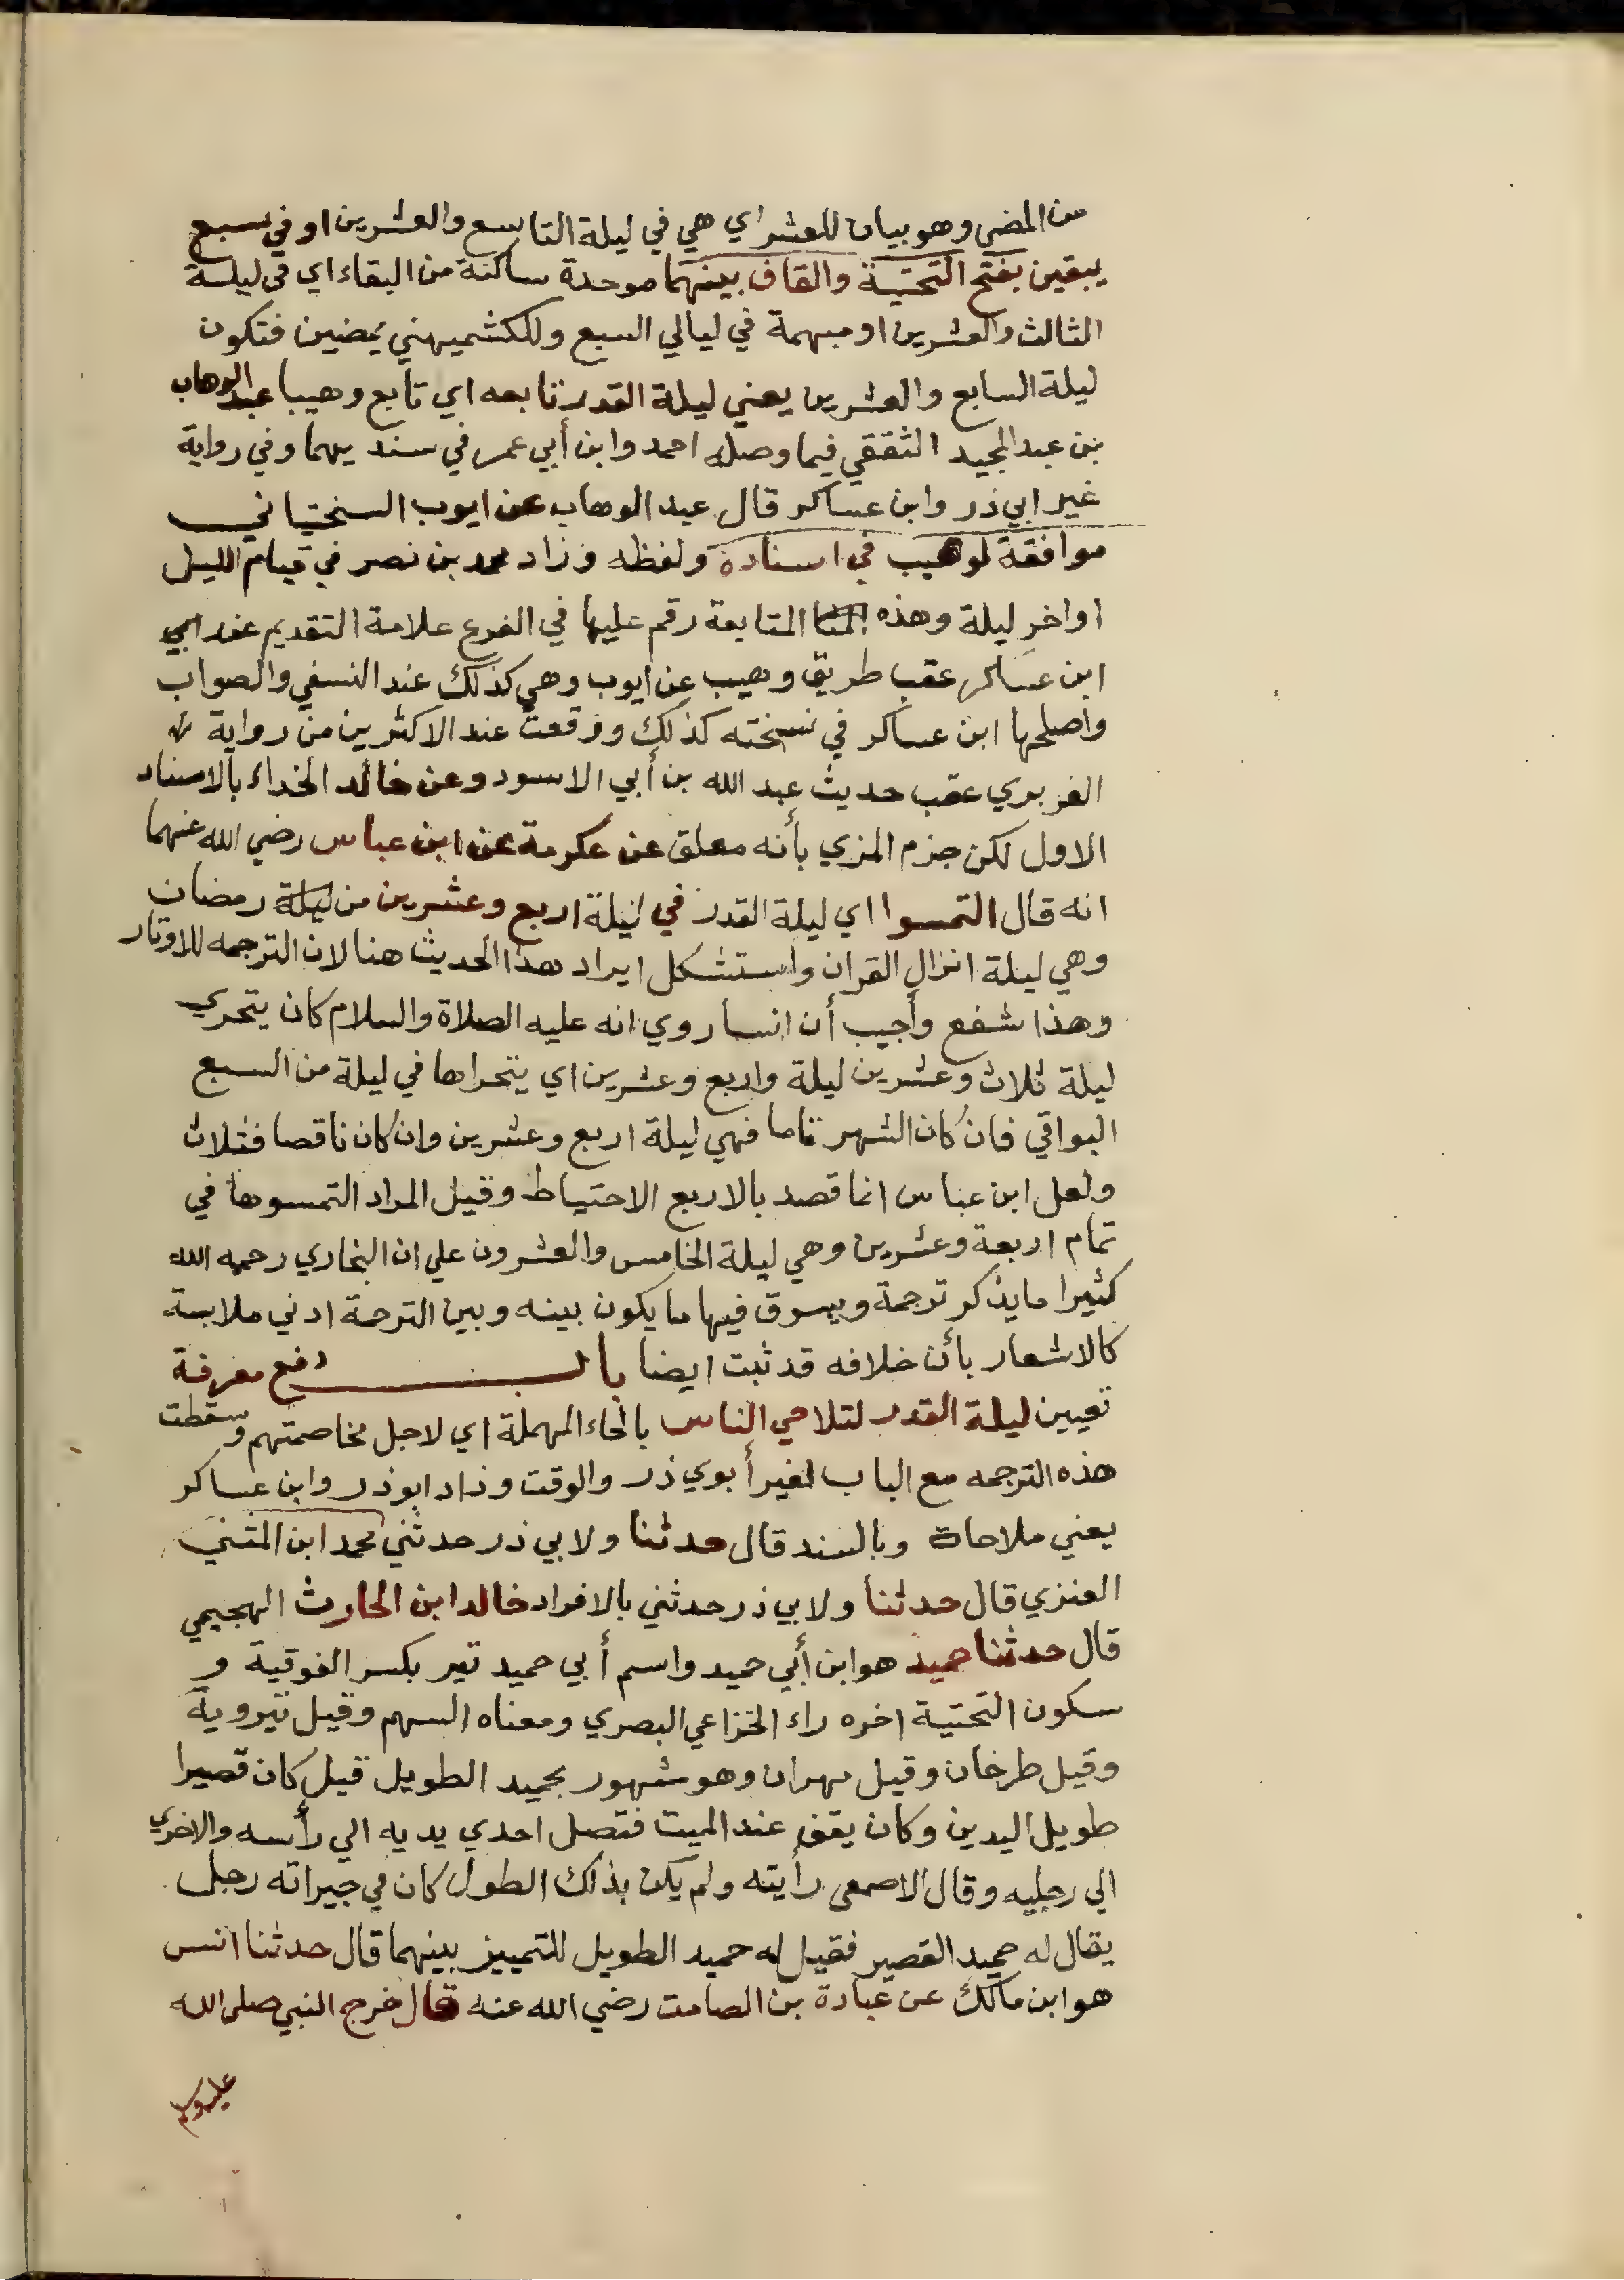 من المضي وهو بيان للعشر اي هي في ليلة التاسع والعشرين او في سبع
يبقين بفتح التحتية والقاف بينهما موحدة ساكنة من البقاء اي في ليلة
الثالث والعشرين او مبهمة في ليالي السبع وللكشميهني يمضين فتكون
ليلة السابع والعشرين يعني ليلة القدر تابعه اي تابع وهيبا عبد الوهاب
بن عبد المجيد الثقفي فيما وصله احمد وابن أبي عمر في سنديهما وفي رواية
غير ابي ذر وابن عساكر قال عبد الوهاب عن ايوب السختياني
موافقة لوهيب في اسناده ولفظه وزاد محمد بن نصر في قيام الليل
او اخر ليلة وهذه المتابعة رقم عليها في الفرع علامة التقديم عند ابي
ابن عساكر عقب طريق وهيب عن ايوب وهي كذلك عند النسفي والصواب
واصلحها ابن عساكر في نسخته كذلك ووقعت عند الاكثرين من رواية
الفربري عقب حديث عبد الله بن أبي الاسود وعن خالد الخداء بالاسناد
الاول لكن جزم المزي بأنه معلق عن عكرمة عن ابن عباس رضي الله عنهما
انه قال التمسوا اي ليلة القدر في ليلة اربع وعشرين من ليلة رمضان
وهي ليلة انزال القران واستشكل ايراد هذا الحديث هنا لان الترجمه للاوتار
وهذا شفع وأجيب أن انسا روي انه عليه الصلاة والسلام كان يتحري
ليلة ثلاث وعشرين ليلة واربع وعشرين اي يتحراها في ليلة من السبع
البواقي فان كان الشهر تاما فهي ليلة اربع وعشرين وان كان ناقصا فثلاث
ولعل ابن عباس انما قصد بالاربع الاحتياط وقيل المراد التمسوها في
تمام اربعة وعشرين وهي ليلة الخامس والعشرون علي ان البخاري رحمه الله
كثيرا ما يذكر ترجمة ويسوق فيها ما يكون بينه وبين الترجمة ادني ملابسة
كالاشعار بأن خلافه قد ثبت ايضا باب رفع معرفة
تعيين ليلة القدر لتلاحي الناس بالحاء المهملة اي لاجل مخاصمتهم وسقطت
هذه الترجمه مع الباب لغير أبوي ذر والوقت وزاد ابوذر وابن عساكر
يعني ملاحاة وبالسند قال حدثنا ولابي ذر حدثني محمد ابن المثني
العنزي قال حدثنا ولابي ذر حدثني بالافراد خالد ابن الحارث الهجيمي
قال حدثنا حميد هو ابن أبي حميد واسم أبي حميد تير بكسر الفوقية و
سكون التحتية اخره راء الخزاعي البصري ومعناه السهم وقيل تيروية
وقيل طرخان وقيل مهران وهو مشهور بحميد الطويل قيل كان قصيرا
طويل اليدين وكان يقف عند الميت فتصل احدي يديه الي رأسه والاخري
الي رجليه وقال الاصمعي رأيته ولم يكن بذلك الطول كان في جيرانه رجل
يقال له حميد القصير فقيل له حميد الطويل للتمييز بينهما قال حدثنا انس
هو ابن مالك عن عبادة بن الصامت رضي الله عنه قال خرج النبي صلى الله
عليه وسلم